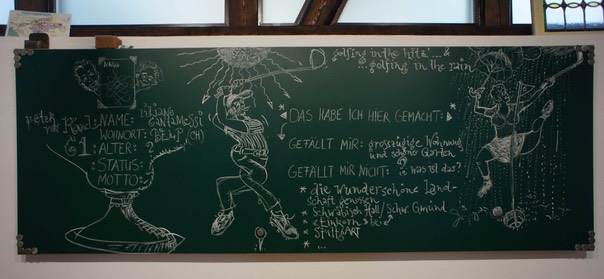 peter von Känel
61
NAME:
WOHNORT: BELP (CH)
ALTER: ?
STATUS:
MOTTO:
golfing in the hitz'...&
...golfing in the rain
DAS HABE ICH HIER GEMACHT:
GEFÄLLT MIR: grosszügige Wohnung
und schöner Garten
GEFÄLLT MIR NICHT: is was ist das?
* die wunderschöne Land-
schaft genossen
* Schwäbisch Hall/Schw. Gmünd
* Einkorn
* STUTTGART
* ...